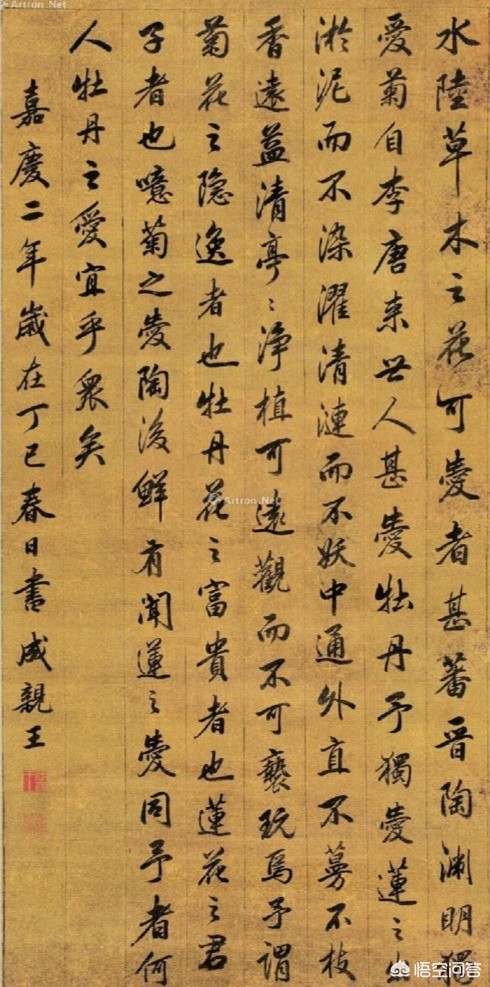 水陸草木之花可愛者甚蕃晉陶淵明獨
愛菊自李唐來世人甚愛牡丹予獨愛蓮之出
淤泥而不染濯清漣而不妖中通外直不蔓不枝
香遠益清亭〻淨植可遠觀而不可褻玩焉予謂
菊花之隱逸者也牡丹花之富貴者也蓮花之君
子者也噫菊之愛陶後鮮有聞蓮之愛同予者何
人牡丹之愛宜乎眾矣
嘉慶二年歲在丁巳春日書成親王
Artron.Net
Artron.Net
Artron.Net
悟空问答